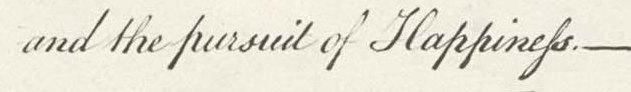 and the pursuit of Happineſs.—